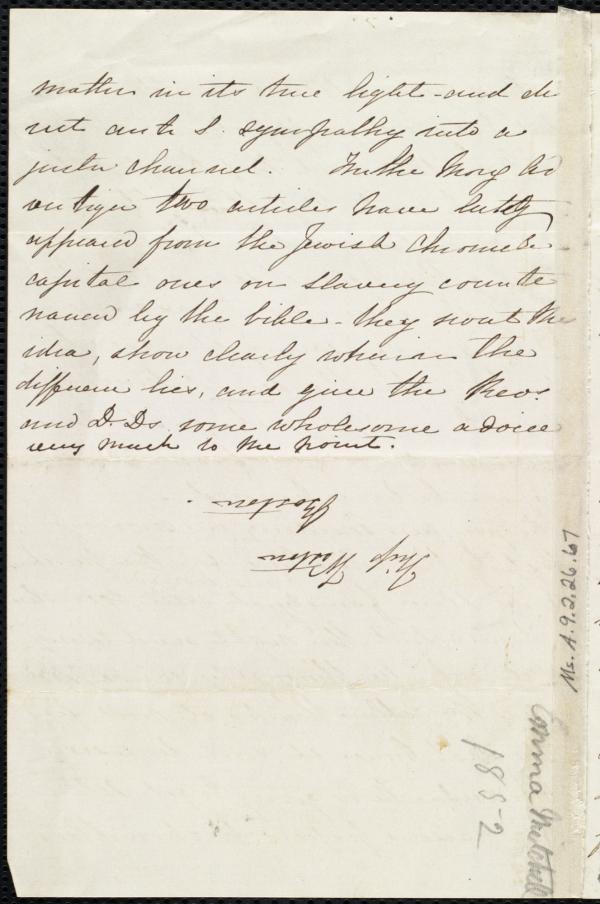 matter in its true light - and di
rect anti S. sympathy into a
juster channel. In the Morg Ad
vertiser two articles have lately
appeared from the Jewish Chronicle -
capital ones on slavery counte
nanced by the bible - they scout the
idea, show clearly wherein the
difference lies, and give the Revs.
and D. Ds. some wholesome advice
very much to the point.
Miss Weston
Boston
Ms. A. 9. 2. 26. 67
Emma Mitchell
1852